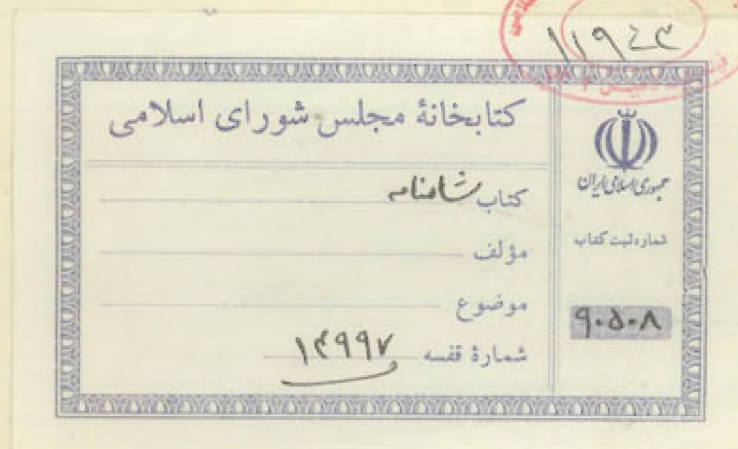 ۱۱۹۴۳
کتابخانهٔ مجلس شورای اسلامی
کتاب شاهنامه
مؤلف
موضوع
شمارهٔ قفسه ۱۴۹۹۷
جمهوری اسلامی ایران
شماره ثبت کتاب
۹۰۵۰۸